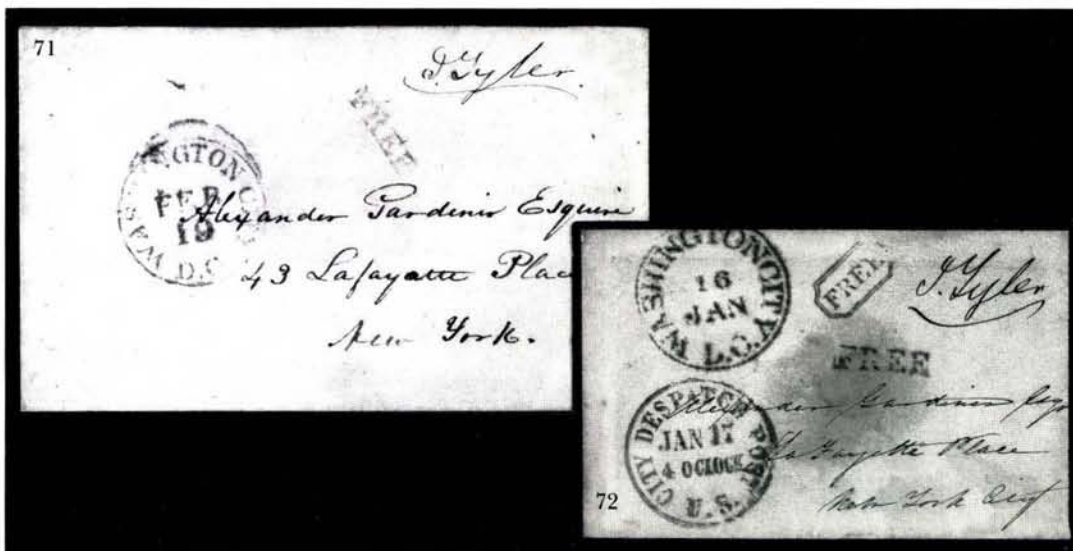 71
J. Tyler.
FREE
WASHINGTON CITY
FEB
19
D.C.
Alexander Gardiner Esquire
43 Lafayette Place
New York.
WASHINGTON CITY
16
JAN
D.C.
FREE
J. Tyler
FREE
CITY DESPATCH POST
JAN 17
4 OCLOCK
U.S.
Alexander Gardiner Esqr
La Fayette Place
New York City
72